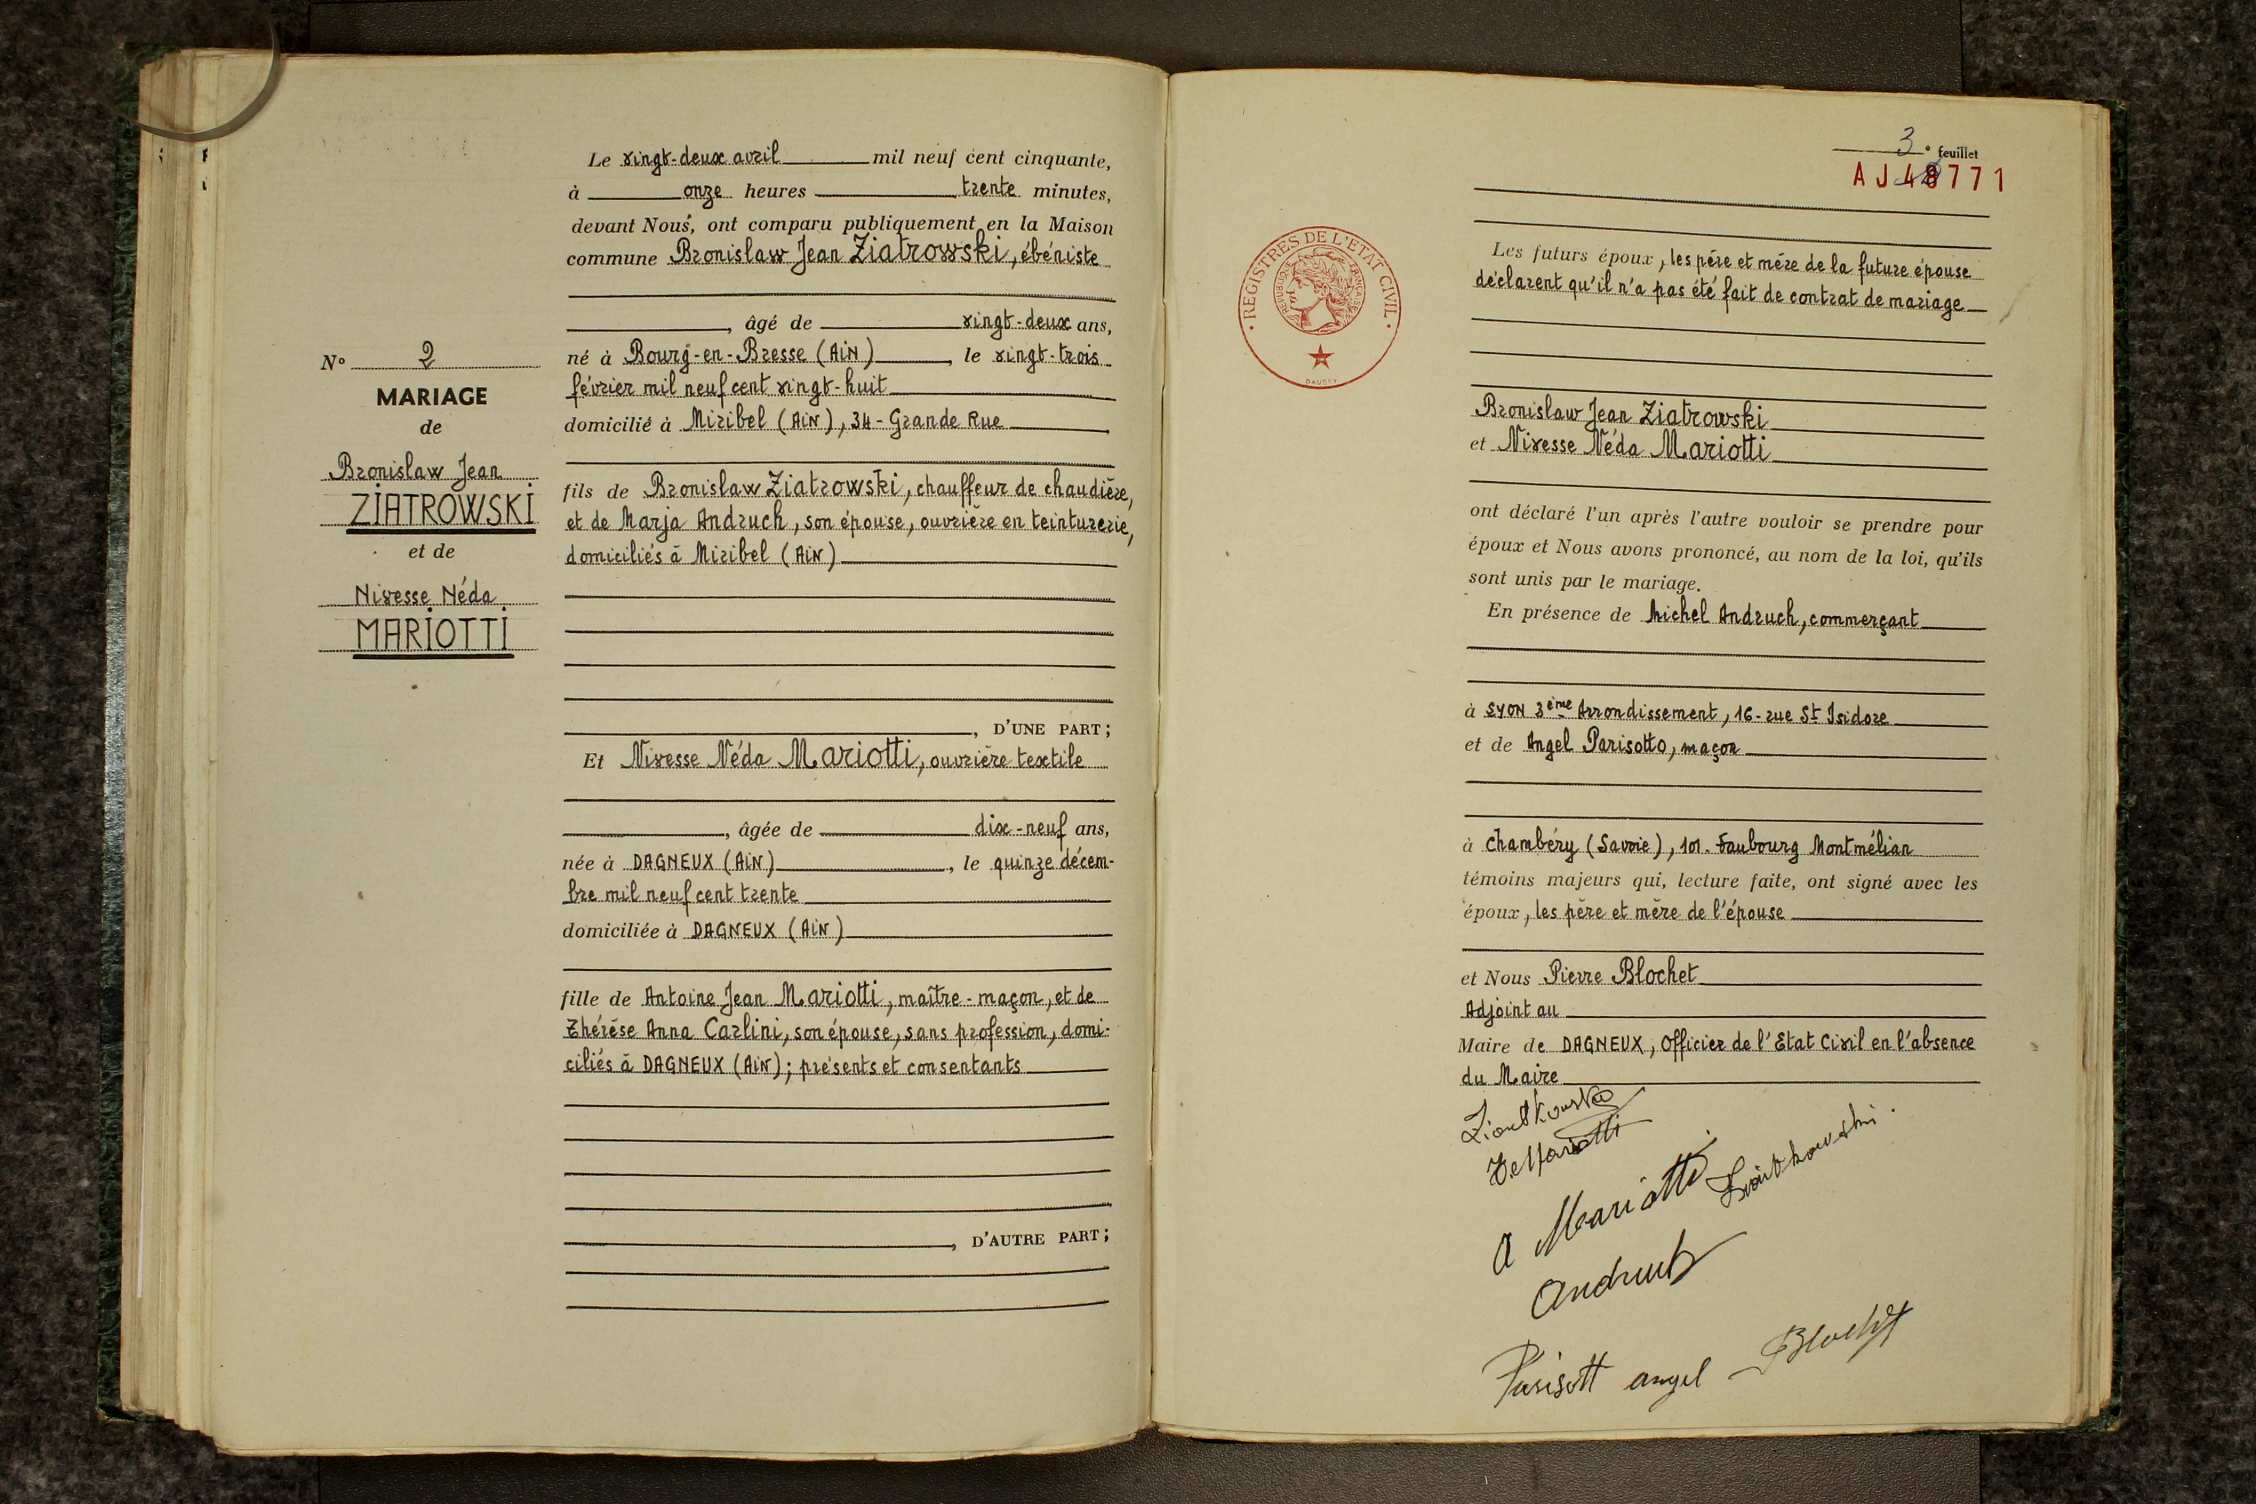 Le vingt-deux avril mil neuf cent cinquante,
à onze heures trente minutes,
devant Nous, ont comparu publiquement en la Maison
commune Bronislaw Jean Ziatrowski, ébéniste
, âgé de vingt-deux ans,
né à Bourg-en-Bresse (AiN), le vingt-trois
février mil neuf cent vingt-huit
domicilié à Miribel (AiN), 34 - Grande Rue
fils de Bronislaw Ziatrowski, chauffeur de chaudière,
et de Marja Andruch, son épouse, ouvrière en teinturerie,
domiciliés à Miribel (AiN)
, D'UNE PART;
Et Nivesse Néda Mariotti, ouvrière textile
, âgée de dix-neuf ans,
née à DAGNEUX (AiN), le quinze décem-
bre mil neuf cent trente
domiciliée à DAGNEUX (AiN)
fille de Antoine Jean Mariotti, maître-maçon, et de
Thérèse Anna Carlini, son épouse, sans profession, domi-
ciliés à DAGNEUX (AiN); présents et consentants
, D'AUTRE PART;
N° 2
MARIAGE
de
Bronislaw Jean
ZiATROWSKi
et de
Nivesse Néda
MARiOTTi
3 e feuillet
AJ48771
REGISTRES DE L'ETAT CIVIL
REPUBLIQUE FRANÇAISE
DAUSSY
Les futurs époux, les père et mère de la future épouse
déclarent qu'il n'a pas été fait de contrat de mariage
Bronislaw Jean Ziatrowski
et Nivesse Néda Mariotti
ont déclaré l'un après l'autre vouloir se prendre pour
époux et Nous avons prononcé, au nom de la loi, qu'ils
sont unis par le mariage.
En présence de Michel Andruch, commerçant
à LYON 3ème Arrondissement, 16 - rue St Isidore
et de Angel Parisotto, maçon
à Chambéry (Savoie), 101 - Faubourg Montmélian
témoins majeurs qui, lecture faite, ont signé avec les
époux, les père et mère de l'épouse
et Nous Pierre Blochet
Adjoint au
Maire de DAGNEUX, Officier de l'Etat Civil en l'absence
du Maire
A Mariotti
Andruch
Parisott angel
Blochet